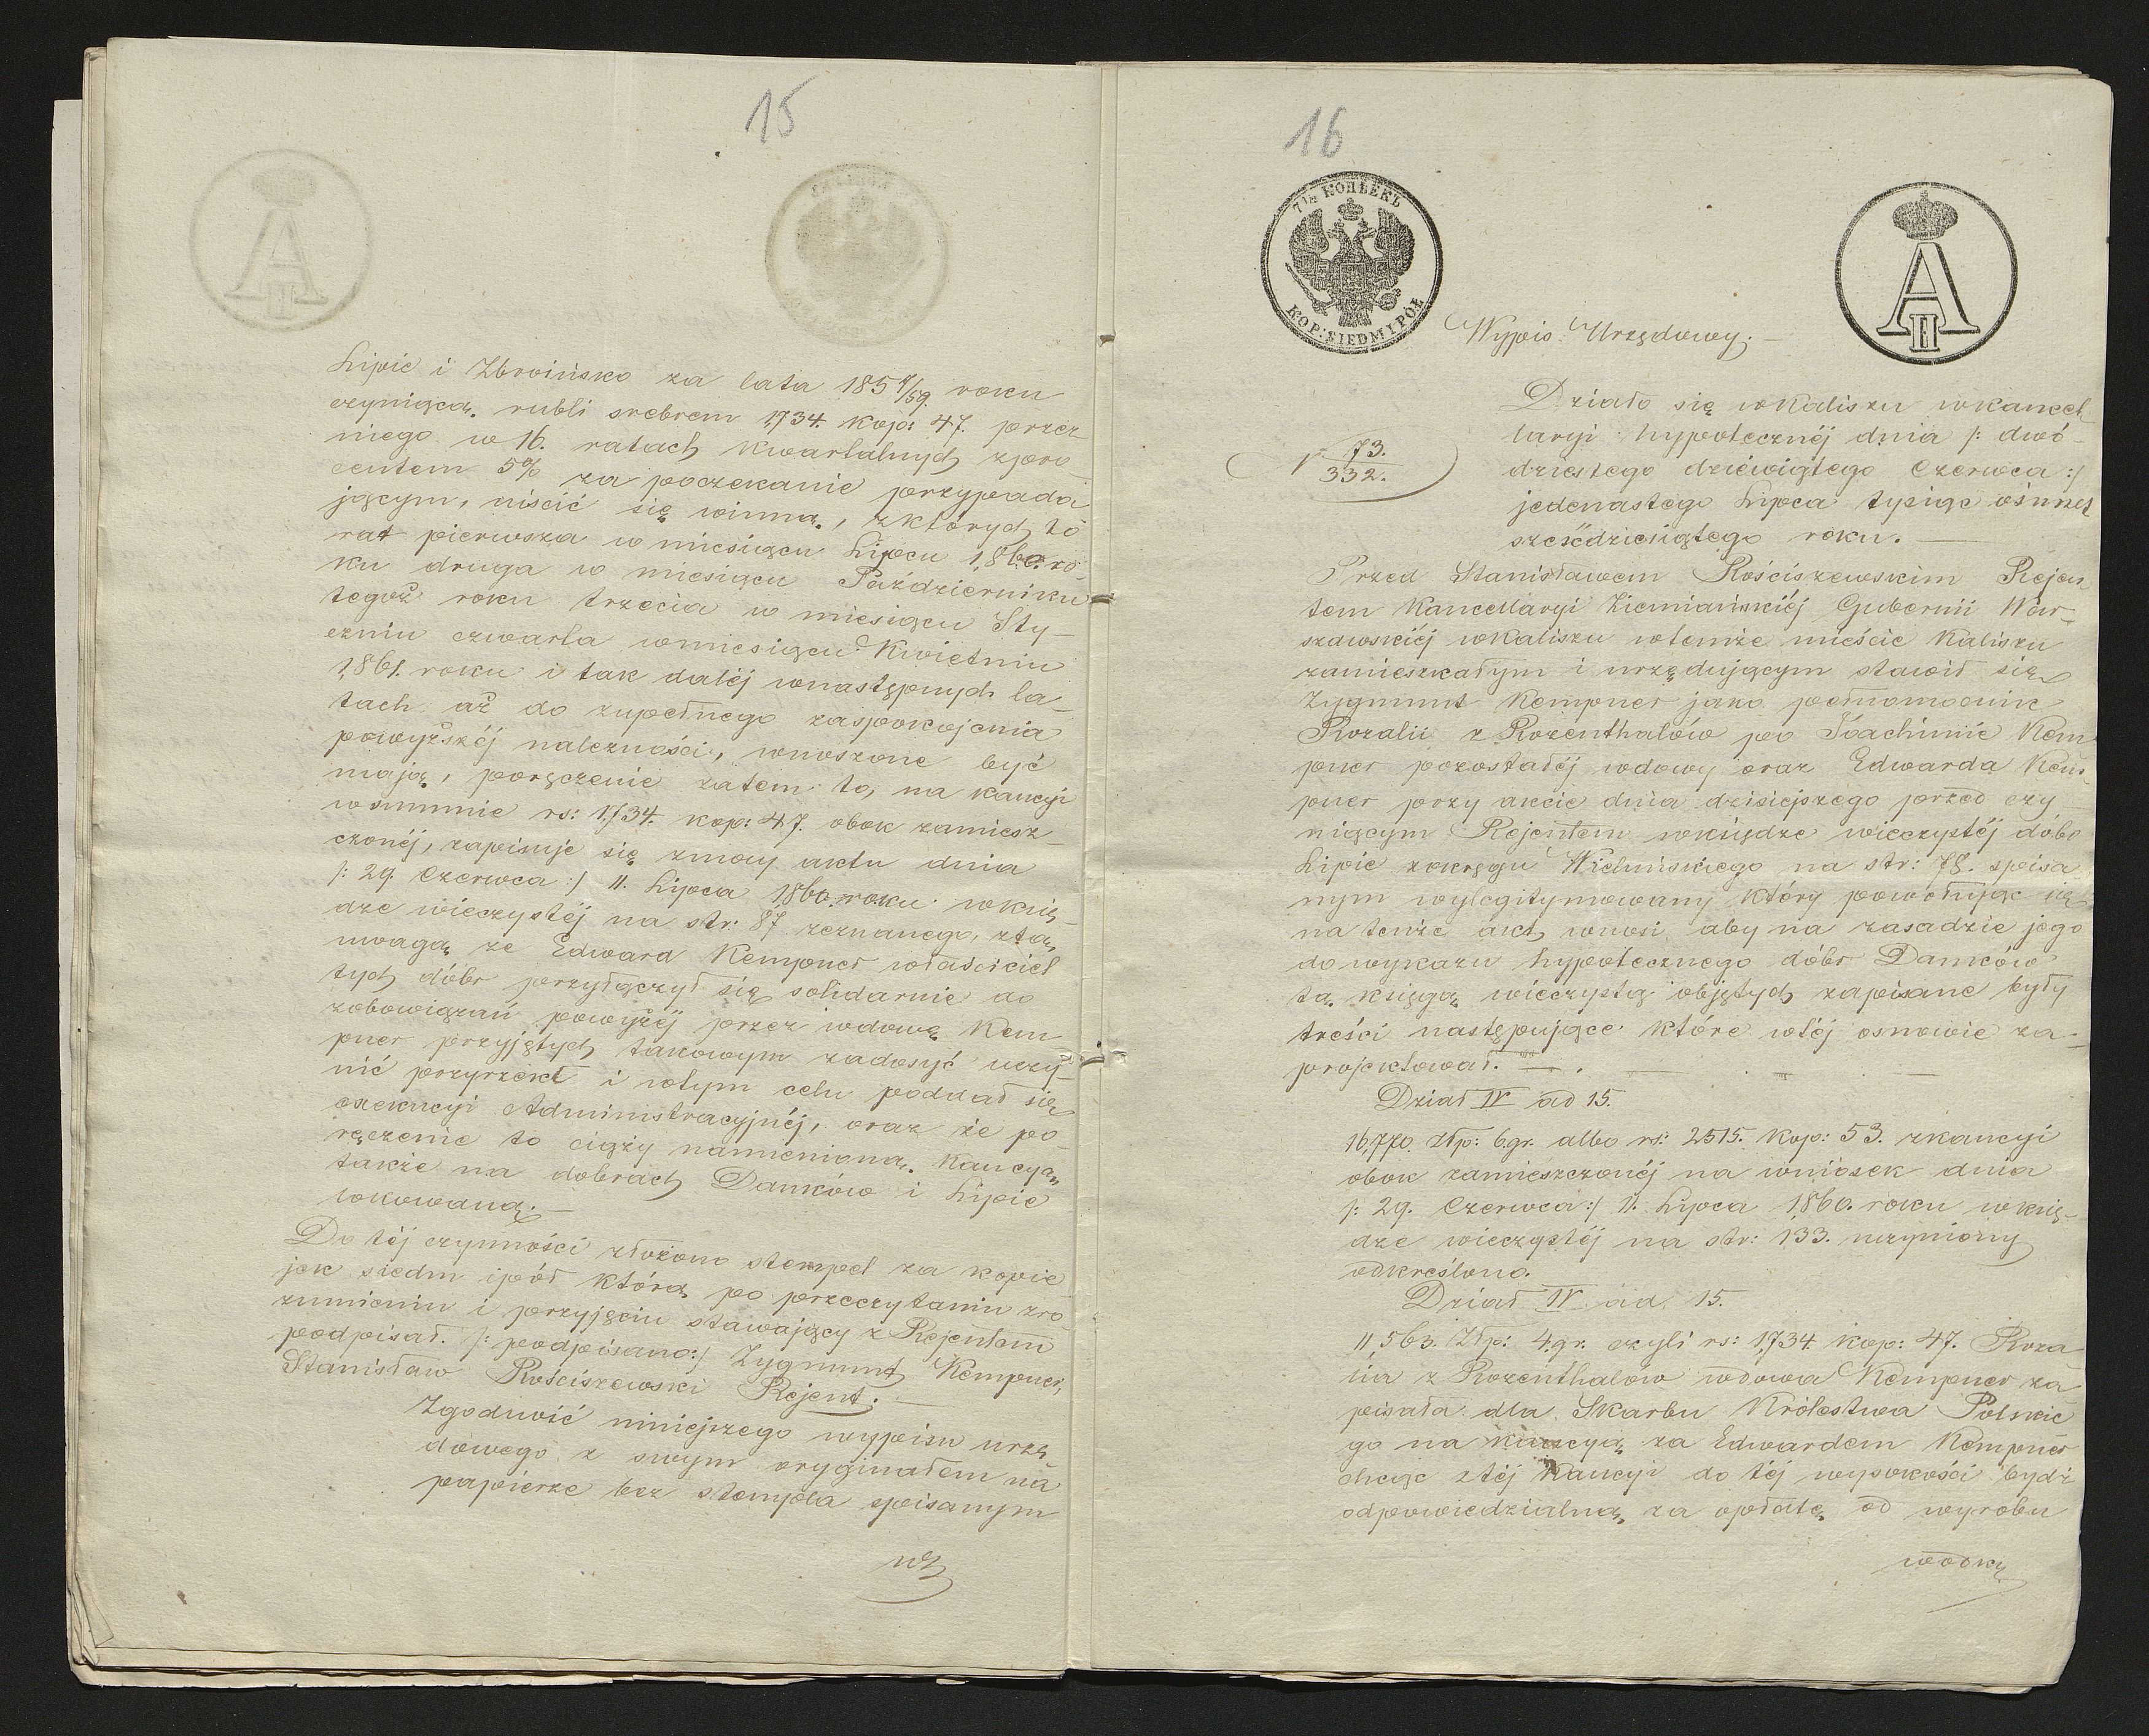 15
Lipie i Zbroińsko za lata 1857/59. roku
czyniącą. rubli srebrem 1,734. kop: 47. przez
niego w 16. ratach kwartalnych zpro
centem 5% za poczekanie przypada
jącym, uiścić się winna, zktórych to
rat pierwsza w miesiącu Lipcu 1,860. ro-
ku druga w miesiącu Październiku
tegoż roku trzecia w miesiącu Sty-
czniu czwarta wmiesiącu Kwietniu
1,861. roku i tak daléj wnastępnych la-
tach aż do zupełnego zaspokojenia
powyższéj należności, wnoszone być
mają, poręczenie zatem to, na kaucyi
wsummie rs: 1,734. kop: 47. obok zamiesz
czonéj, zapisuje się zmocy aktu dnia
/: 29. Czerwca :/ 11. Lipca 1860. roku wksię-
dze wieczystéj na str: 87. zeznanego, ztą,
uwagą że Edward Kempner właściciel
tych dóbr przyłączył się solidarnie do
zobowiązań powyżéj przez wdowę Kem
pner przyjętych takowym zadosyć uczy-
nić przyrzekł i wtym celu poddał się
exekucyi Administracyjnéj, oraz że po-
ręczenie to ciąży namienioną. Kaucyą,
także na dobrach Danków i Lipie
lokowaną. —
Do téj czynności złożono stempel za kopie
jek siedm ipół którą, po przeczytaniu zro-
zumieniu i przyjęciu stawający z Rejentem
podpisał. /: podpisano:/ Zygmunt Kempner,
Stanisław Rościszewski Rejent. —
Zgodność niniejszego wypisu urzę
dowego z swym oryginałem na
papierze bez stempla spisanym
16
7½ КОПѢЕКЪ
KOP: SIEDM I PÓŁ
A II
Wypis Urzędowy. —
N 73.
332.
Działo się wKaliszu wkancel
laryi hypotecznéj dnia /: dwó-
dziestego dziewiątego Czerwca :/
jedenastego Lipca tysiąc ośmset
sześćdziesiątego roku. —
Przed Stanisławem Rościszewskim Rejen
tem Kancellaryi Ziemiańskiéj Gubernii War-
szawskiéj wKaliszu wtemże mieście Kaliszu
zamieszkałym i urzędującym stawił się
Zygmunt Kempner jako pełnomocnik
Rozalii z Rozenthalów po Joachimie Kem
pner pozostałéj wdowy oraz Edwarda Kem-
pner przy akcie dnia dzisiejszego przed czy
niącym Rejentem wksiędze wieczystéj dóbr
Lipie zokręgu Wieluńskiego na str: 78. spisa
nym wylegitymowany który powołując się
na tenże akt, wnosi aby na zasadzie jego
do wykazu hypotecznego dóbr Danków
tą. księgą wieczystą objętych zapisane były
treści następujące które wtéj osnowie za-
projektował. —
Dział IV ad 15.
16,770. złp: 6 gr. albo rs: 2515. kop: 53. zkaucyi
obok zamieszczonéj na wniosek dnia
/: 29. Czerwca :/ 11. Lipca 1,860. roku wksię-
dze wieczystéj na str: 133. uczyniony
odkreślono.
Dział IV ad. 15.
11,563. złp: 4. gr. czyli rs: 1,734. kop: 47. Roza
lia z Rozenthalów wdowa Kempner za
pisała dla Skarbu Królestwa Polskie
go na kaucyą za Edwardem Kempner
chcąc ztéj Kaucyi do téj wysokości bydź
odpowiedzialną, za opłatę od wyrobu
wódki